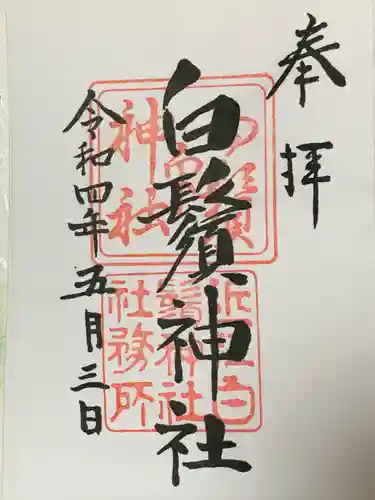 奉拝
白鬚神社
令和四年五月三日
白鬚神社
近江白鬚神社社務所